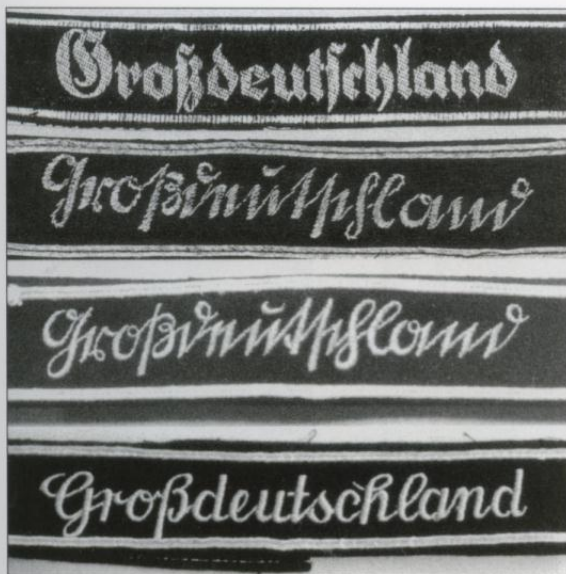 Großdeutschland
Großdeutschland
Großdeutschland
Großdeutschland